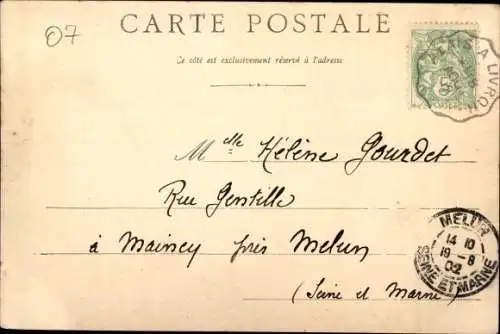 07
CARTE POSTALE
Ce côté est exclusivement réservé à l'adresse
A LIVRON
Melle Hélène Gourdet
Rue Gentille
à Maincy près Melun
(Seine et Marne)
MELUN
14 10
19 - 8
02
SEINE ET MARNE